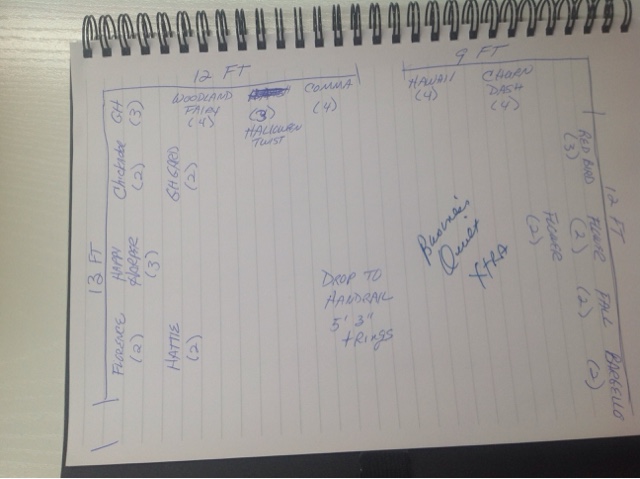 12 FT
GH
(3)
WOODLAND
FAIRY
(4)
(3)
HALLOWEEN
TWIST
COMMA
(4)
9 FT
HAWAII
(4)
CHURN
DASH
(4)
13 FT
Chickadee
(2)
GH GARD
(2)
HAPPY
(3)
FLORENCE
(2)
HATTIE
(2)
DROP TO
HANDRAIL
5' 3"
+ Rings
Quilt
XTRA
12 FT
RED BIRD
(3)
FLOWER
(2)
FLOWER
(2)
FALL
(2)
BARGELLO
(2)